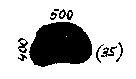 500
400
(35)